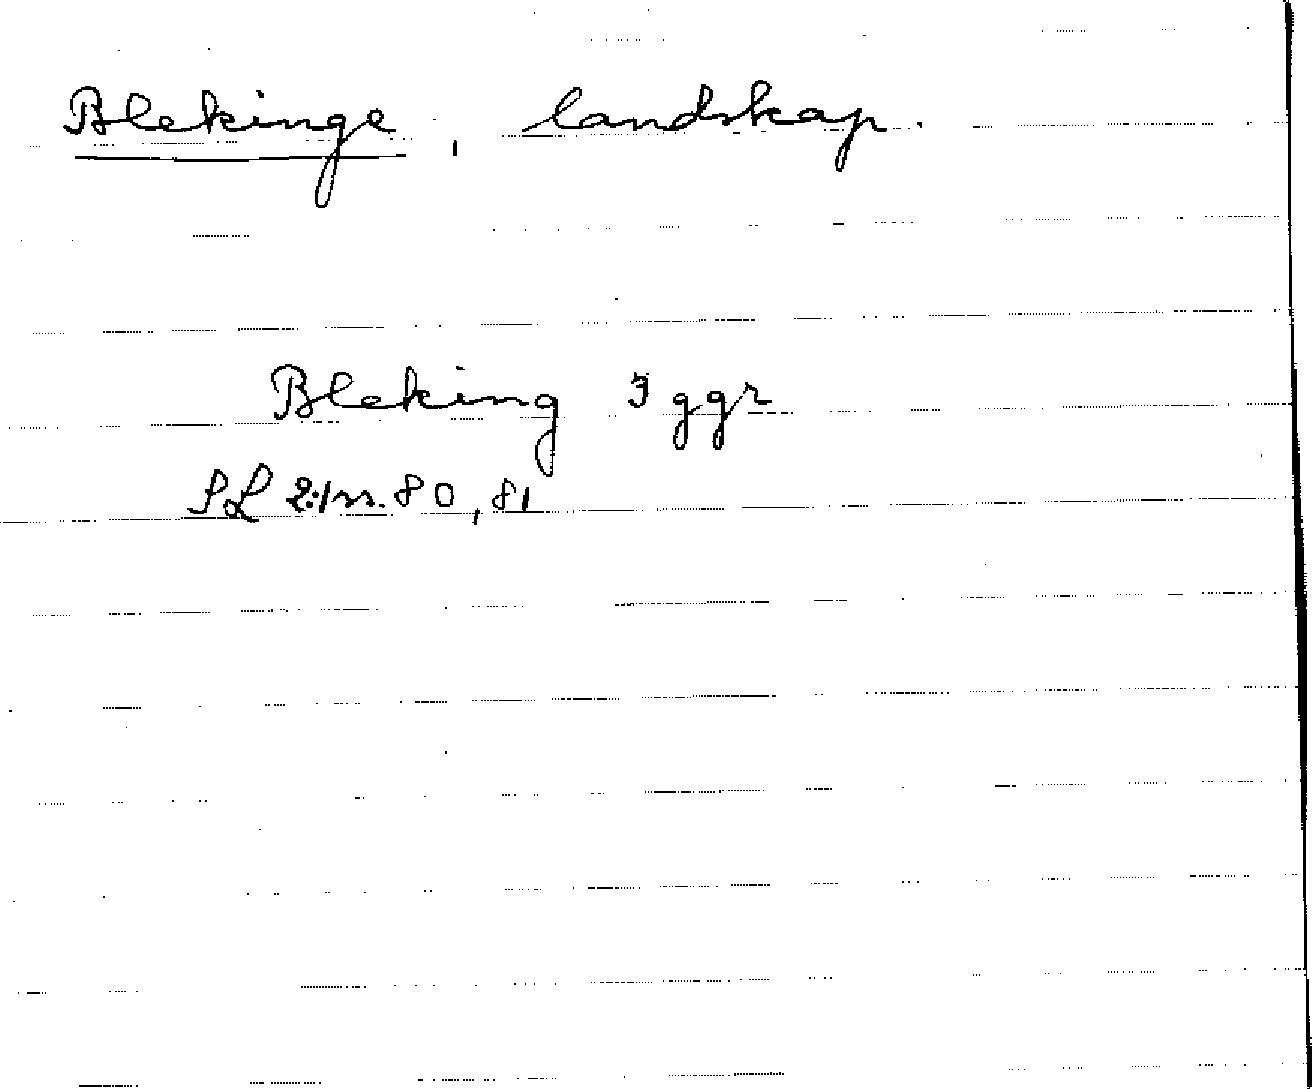 Blekinge, landskap.
Bleking 3 ggr
SL 2:1 s. 80, 81